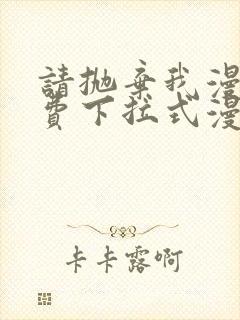 請拋棄我漫
費下拉式漫
卡卡露啊